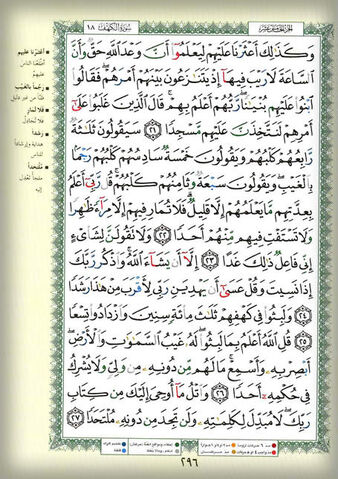 الجزء الخامس عشر
سورة الكهف ١٨
وَكَذَٰلِكَ أَعْثَرْنَا عَلَيْهِمْ لِيَعْلَمُوٓا۟ أَنَّ وَعْدَ ٱللَّهِ حَقٌّ وَأَنَّ
ٱلسَّاعَةَ لَا رَيْبَ فِيهَآ إِذْ يَتَنَٰزَعُونَ بَيْنَهُمْ أَمْرَهُمْ ۖ فَقَالُوا۟
ٱبْنُوا۟ عَلَيْهِم بُنْيَٰنًا ۖ رَّبُّهُمْ أَعْلَمُ بِهِمْ ۚ قَالَ ٱلَّذِينَ غَلَبُوا۟ عَلَىٰٓ
أَمْرِهِمْ لَنَتَّخِذَنَّ عَلَيْهِم مَّسْجِدًا ٢١ سَيَقُولُونَ ثَلَٰثَةٌ
رَّابِعُهُمْ كَلْبُهُمْ وَيَقُولُونَ خَمْسَةٌ سَادِسُهُمْ كَلْبُهُمْ رَجْمًۢا
بِٱلْغَيْبِ ۖ وَيَقُولُونَ سَبْعَةٌ وَثَامِنُهُمْ كَلْبُهُمْ ۚ قُل رَّبِّىٓ أَعْلَمُ
بِعِدَّتِهِم مَّا يَعْلَمُهُمْ إِلَّا قَلِيلٌ ۗ فَلَا تُمَارِ فِيهِمْ إِلَّا مِرَآءً ظَٰهِرًا
وَلَا تَسْتَفْتِ فِيهِم مِّنْهُمْ أَحَدًا ٢٢ وَلَا تَقُولَنَّ لِشَا۟ىْءٍ
إِنِّى فَاعِلٌ ذَٰلِكَ غَدًا ٢٣ إِلَّآ أَن يَشَآءَ ٱللَّهُ ۚ وَٱذْكُر رَّبَّكَ
إِذَا نَسِيتَ وَقُلْ عَسَىٰٓ أَن يَهْدِيَنِ رَبِّى لِأَقْرَبَ مِنْ هَٰذَا رَشَدًا
٢٤ وَلَبِثُوا۟ فِى كَهْفِهِمْ ثَلَٰثَ مِا۟ئَةٍ سِنِينَ وَٱزْدَادُوا۟ تِسْعًا
٢٥ قُلِ ٱللَّهُ أَعْلَمُ بِمَا لَبِثُوا۟ ۖ لَهُۥ غَيْبُ ٱلسَّمَٰوَٰتِ وَٱلْأَرْضِ ۖ
أَبْصِرْ بِهِۦ وَأَسْمِعْ ۚ مَا لَهُم مِّن دُونِهِۦ مِن وَلِىٍّ وَلَا يُشْرِكُ
فِى حُكْمِهِۦٓ أَحَدًا ٢٦ وَٱتْلُ مَآ أُوحِىَ إِلَيْكَ مِن كِتَابِ
رَبِّكَ ۖ لَا مُبَدِّلَ لِكَلِمَٰتِهِۦ وَلَن تَجِدَ مِن دُونِهِۦ مُلْتَحَدًا ٢٧
أعثرنا عليهم
أطلعنا الناس
عليهم
رجما بالغيب
ظنا من غير دليل
فلا تمار
فلا تجادل
رشدا
هداية وإرشادا
للناس
ملتحدا
ملجأ تعدل
إليه
٢٩٦